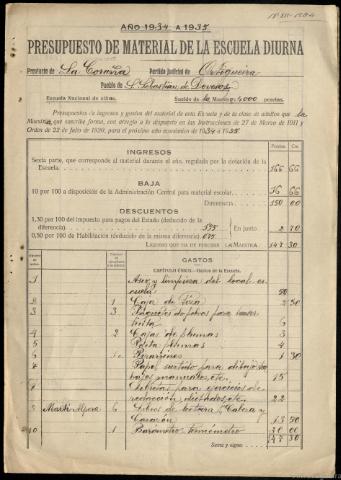 AÑO 1934 A 1935
PRESUPUESTO DE MATERIAL DE LA ESCUELA DIURNA
Provincia de La Coruña Partido judicial de Ortigueira
Pueblo de S. Sebastián de Devesos
Escuela Nacional de niñas. Sueldo de la Maestra 4.000 pesetas.
Presupuestos de ingresos y gastos del material de esta Escuela y de la clase de adultos que la
Maestra, que suscribe forma, con arreglo a lo dispuesto en las Instrucciones de 27 de Marzo de 1911 y
Orden de 22 de julio de 1929, para el próximo año económico de 1934 a 1935
Pesetas Cts.
INGRESOS
Sexta parte, que corresponde al material durante el año, regulado por la dotación de la
Escuela 166 66
BAJA
10 por 100 a disposición de la Administración Central para material escolar 16 66
DIFERENCIA 150 00
DESCUENTOS
1,30 por 100 del impuesto para pagos del Estado (deducido de la
diferencia) 1'95 En junto 2 70
0,50 por 100 de Habilitación (deducido de la misma diferencia) 0'75
LÍQUIDO QUE HA DE PERCIBIR LA MAESTRA 147 30
GASTOS
CAPÍTULO ÚNICO.—Gastos de la Escuela.
1 Aseo y limpieza del local escuela 50
2 1 Caja de tiza 2 50
3 3 Paquetes de polvos para hacer
tinta 6
4 2 Cajas de plumas 3
5 Porta plumas 4
6 Pizarrines 1 30
Papel surtido para dibujo, tra
bajos manuales, etc. 15
Libretas para ejercicios de
redacción, dictados, etc. 22
6 Libros de lectura, Cabeza y
Corazón 13 50
10 1 Barómetro termómetro 30 00
Suma y sigue 147 30